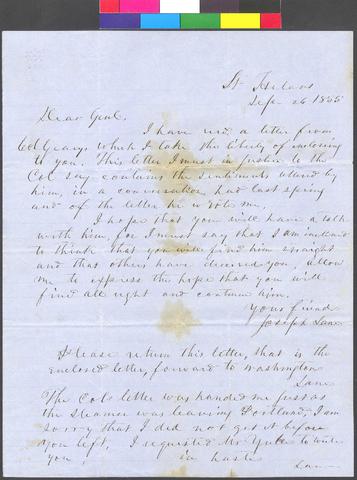 St Helens
Sept 26 1855
Dear Genl.
I have recd. a letter from
Col Geary, which I take the liberty of inclosing
to you. This letter I must in justice to the
Col. say contains the sentiments uttered by
him, in a conversation had last spring
and of the letter he wrote me,
I hope that you will have a talk
with him, for I must say that I am inclined
to think that you will find him straight
and that others have deceived you allow
me to express the hope that you will
find all right and continue him.
Your friend
Joseph Lane
Please return this letter, that is the
enclosed letter, forward to Washington
Lane
The Cols letter was handed me just as
the Steamer was leaving Portland, I am
sorry that I did not get it before
you left, I requested Mr to write
you,
in haste
Lane